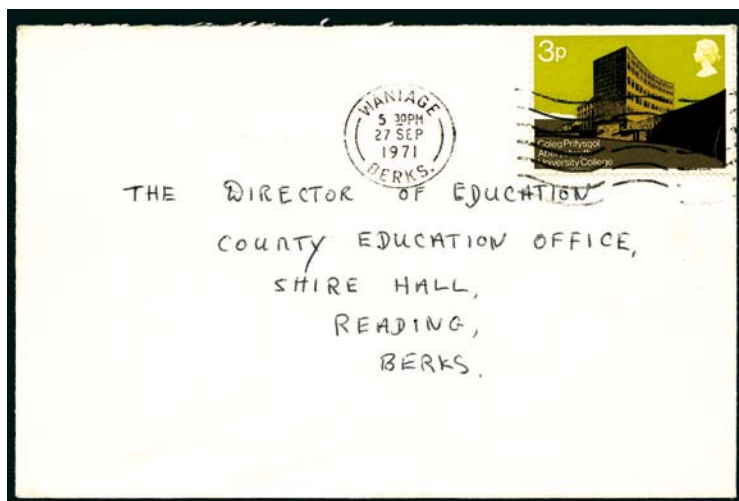 3p
WANTAGE
5 30PM
27 SEP
1971
BERKS.
Coleg Prifysgol
Aberystwyth
University College
THE DIRECTOR OF EDUCATION
COUNTY EDUCATION OFFICE,
SHIRE HALL,
READING,
BERKS.